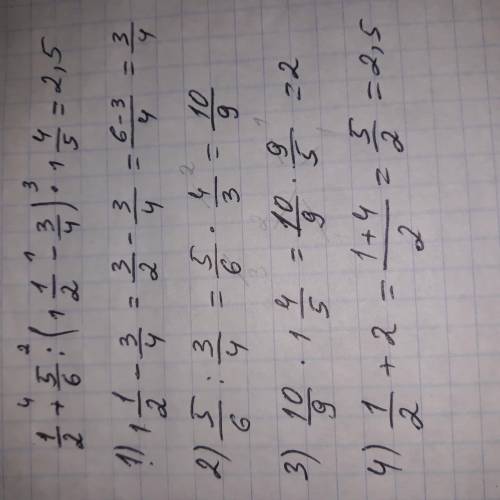 1/2 + 5/6 : (1 1/2 - 3/4) · 1 4/5 = 2,5
4 2 1 3
1) 1 1/2 - 3/4 = 3/2 - 3/4 = 6-3/4 = 3/4
2) 5/6 : 3/4 = 5/6 · 4/3 = 10/9
3) 10/9 · 1 4/5 = 10/9 · 9/5 = 2
4) 1/2 + 2 = 1+4/2 = 5/2 = 2,5